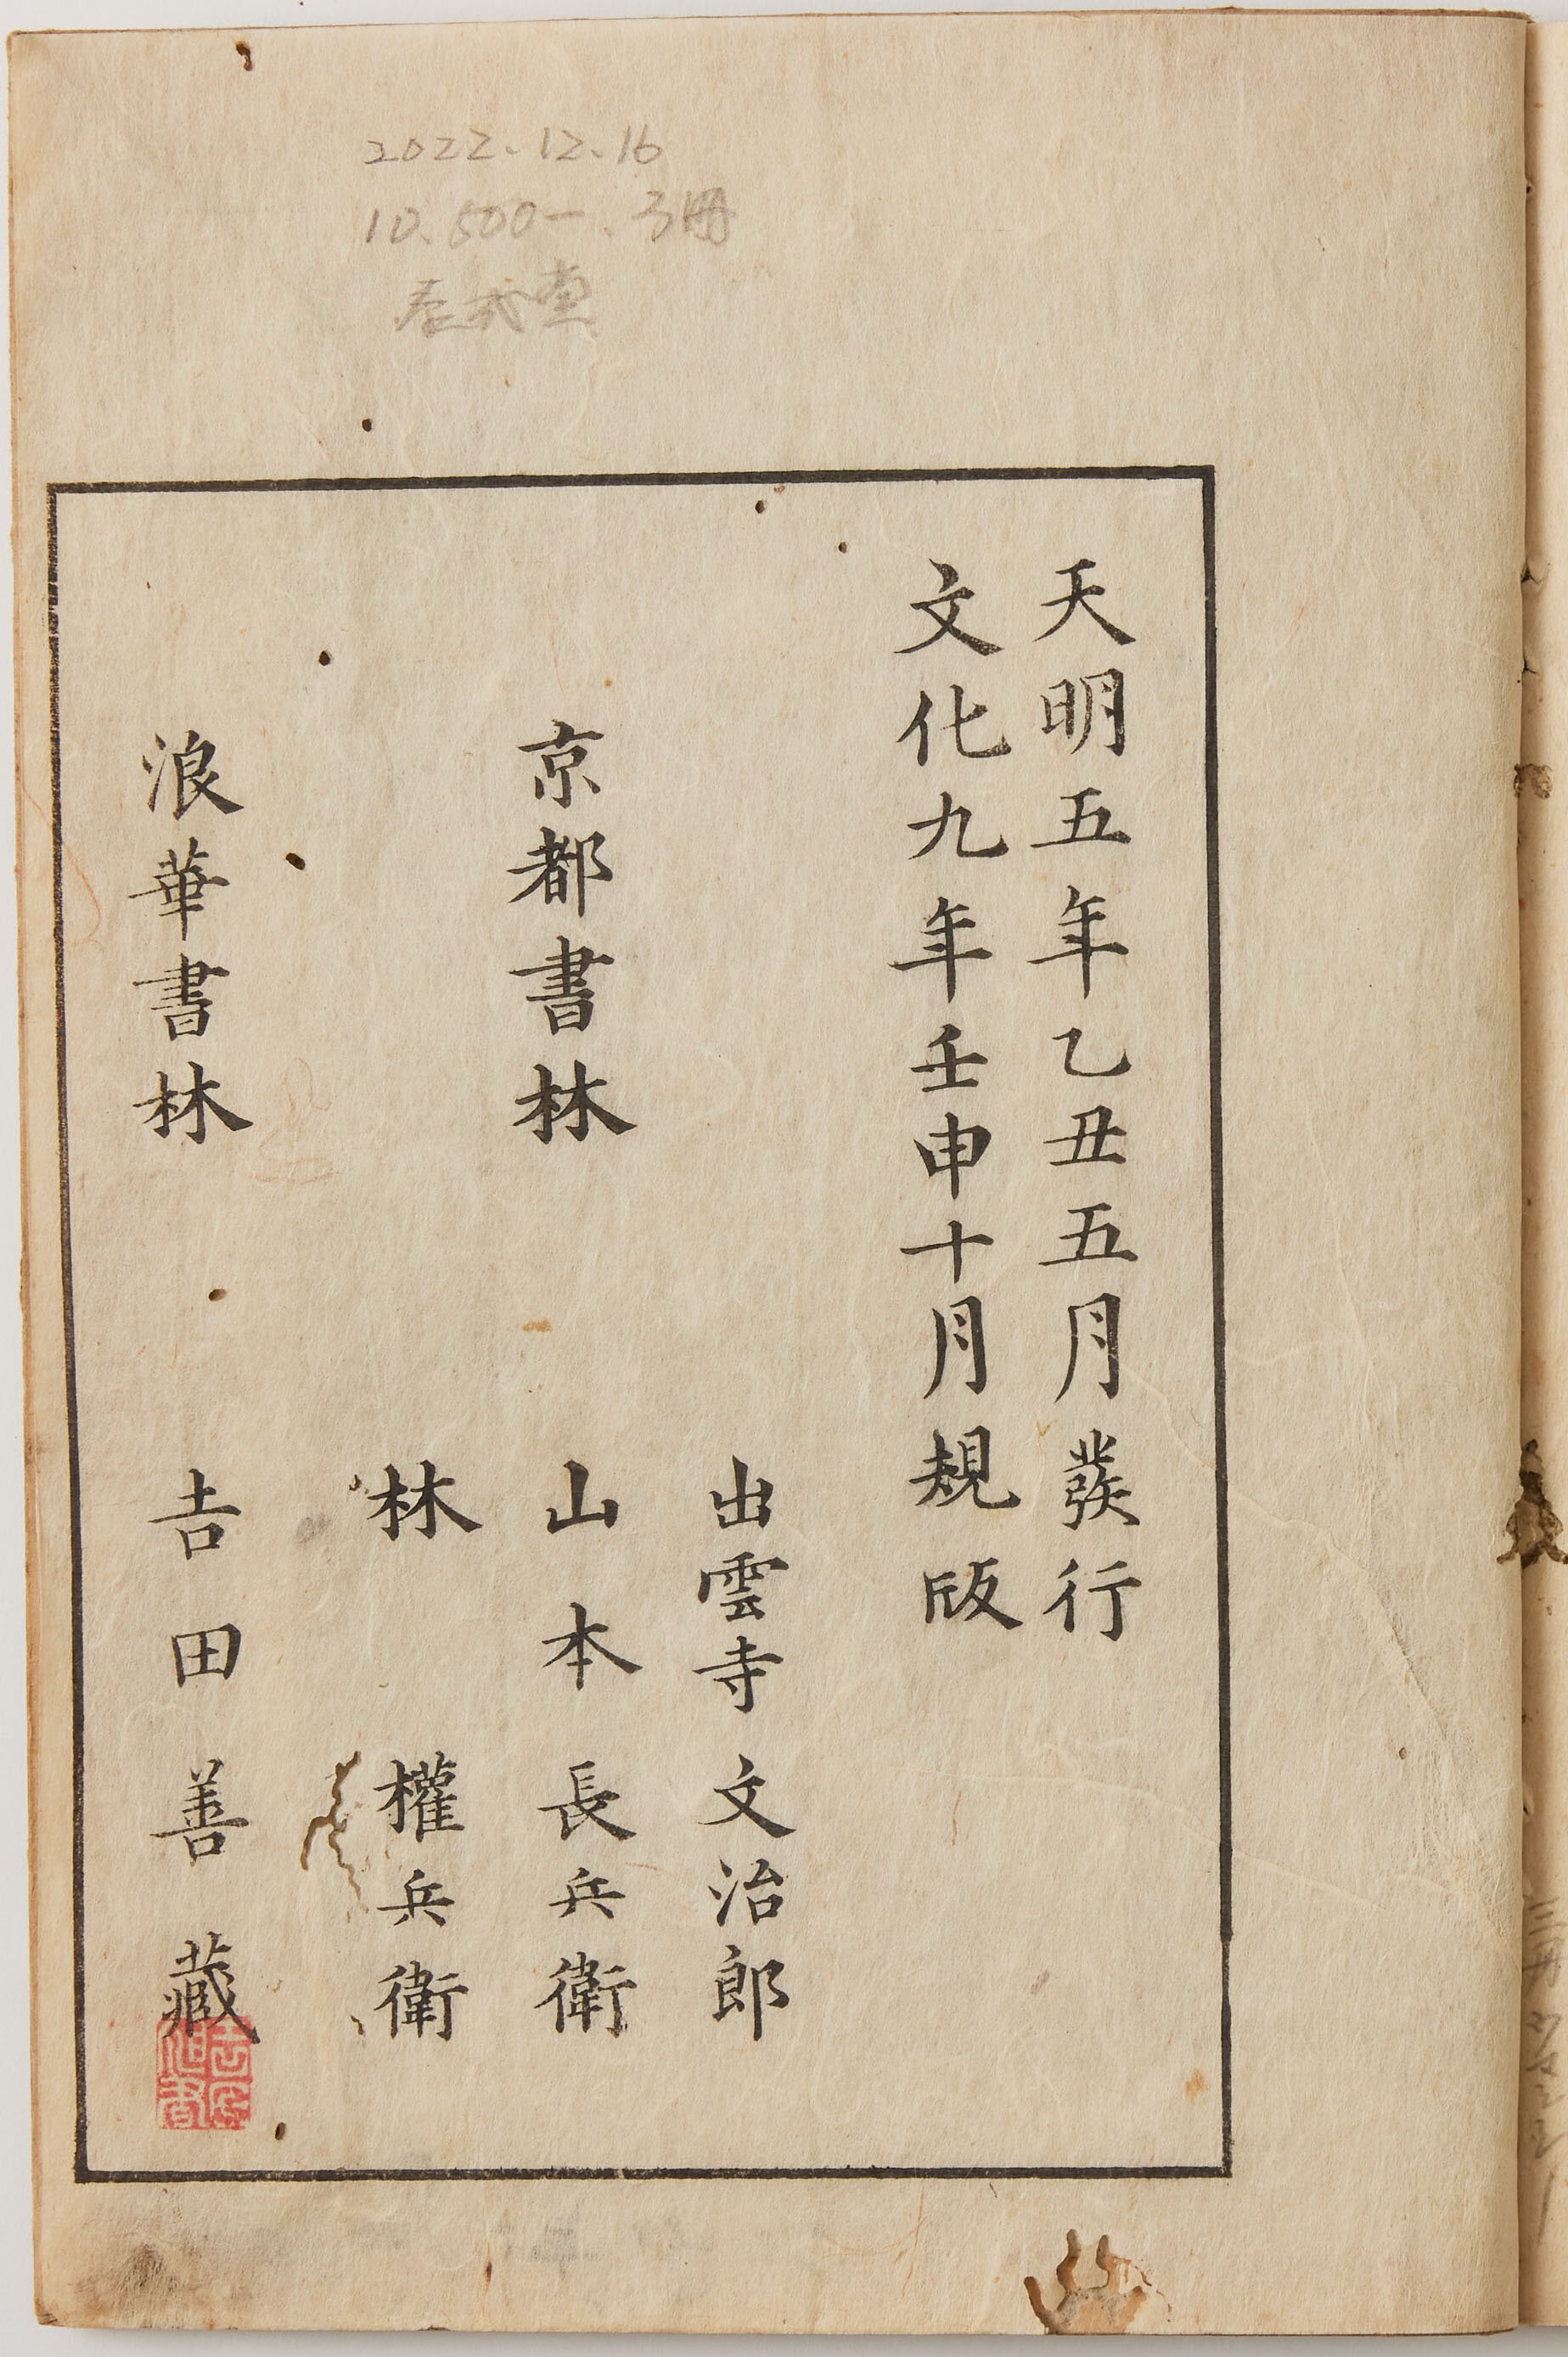 2022.12.16
10.500-.3冊
天明五年乙丑五月發行
文化九年壬申十月規版
京都書林
出雲寺文治郎
山本長兵衛
林權兵衛
浪華書林
吉田善藏